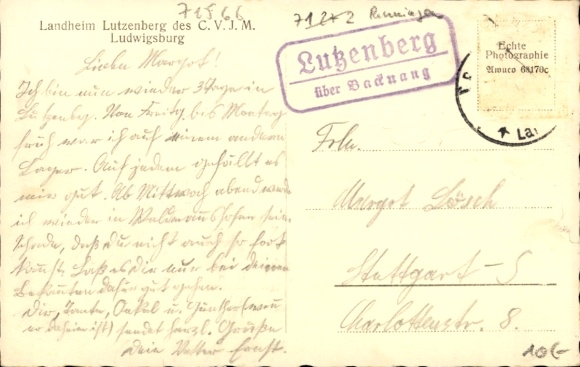 71566
71272 Renningen
Landheim Lutzenberg des C.V.J.M.
Ludwigsburg
Liebe Margot!
Ich bin nun wieder 3 Tage in
Lutzenbg. Von Freitg bis Montag
früh war ich auf einem andern
Lager. Auf jedem gefällt es
mir gut. Ab Mittwoch abend werde
ich wieder in Waldmannshofen sein.
Schade, daß du nicht auch so fort
kannst. Laß es dir nun bei deinen
Bekannten dafür gut gehen.
Dir, Tante, Onkel u. Günther (wenn
er daheim ist) sendet herzl. Grüße
Dein Vetter Ernst.
Lutzenberg
über Backnang
Echte
Photographie
Amuco 68170c
La
Frln.
Margot Lösch
Stuttgart-S
Charlottenstr. 8.
10.-